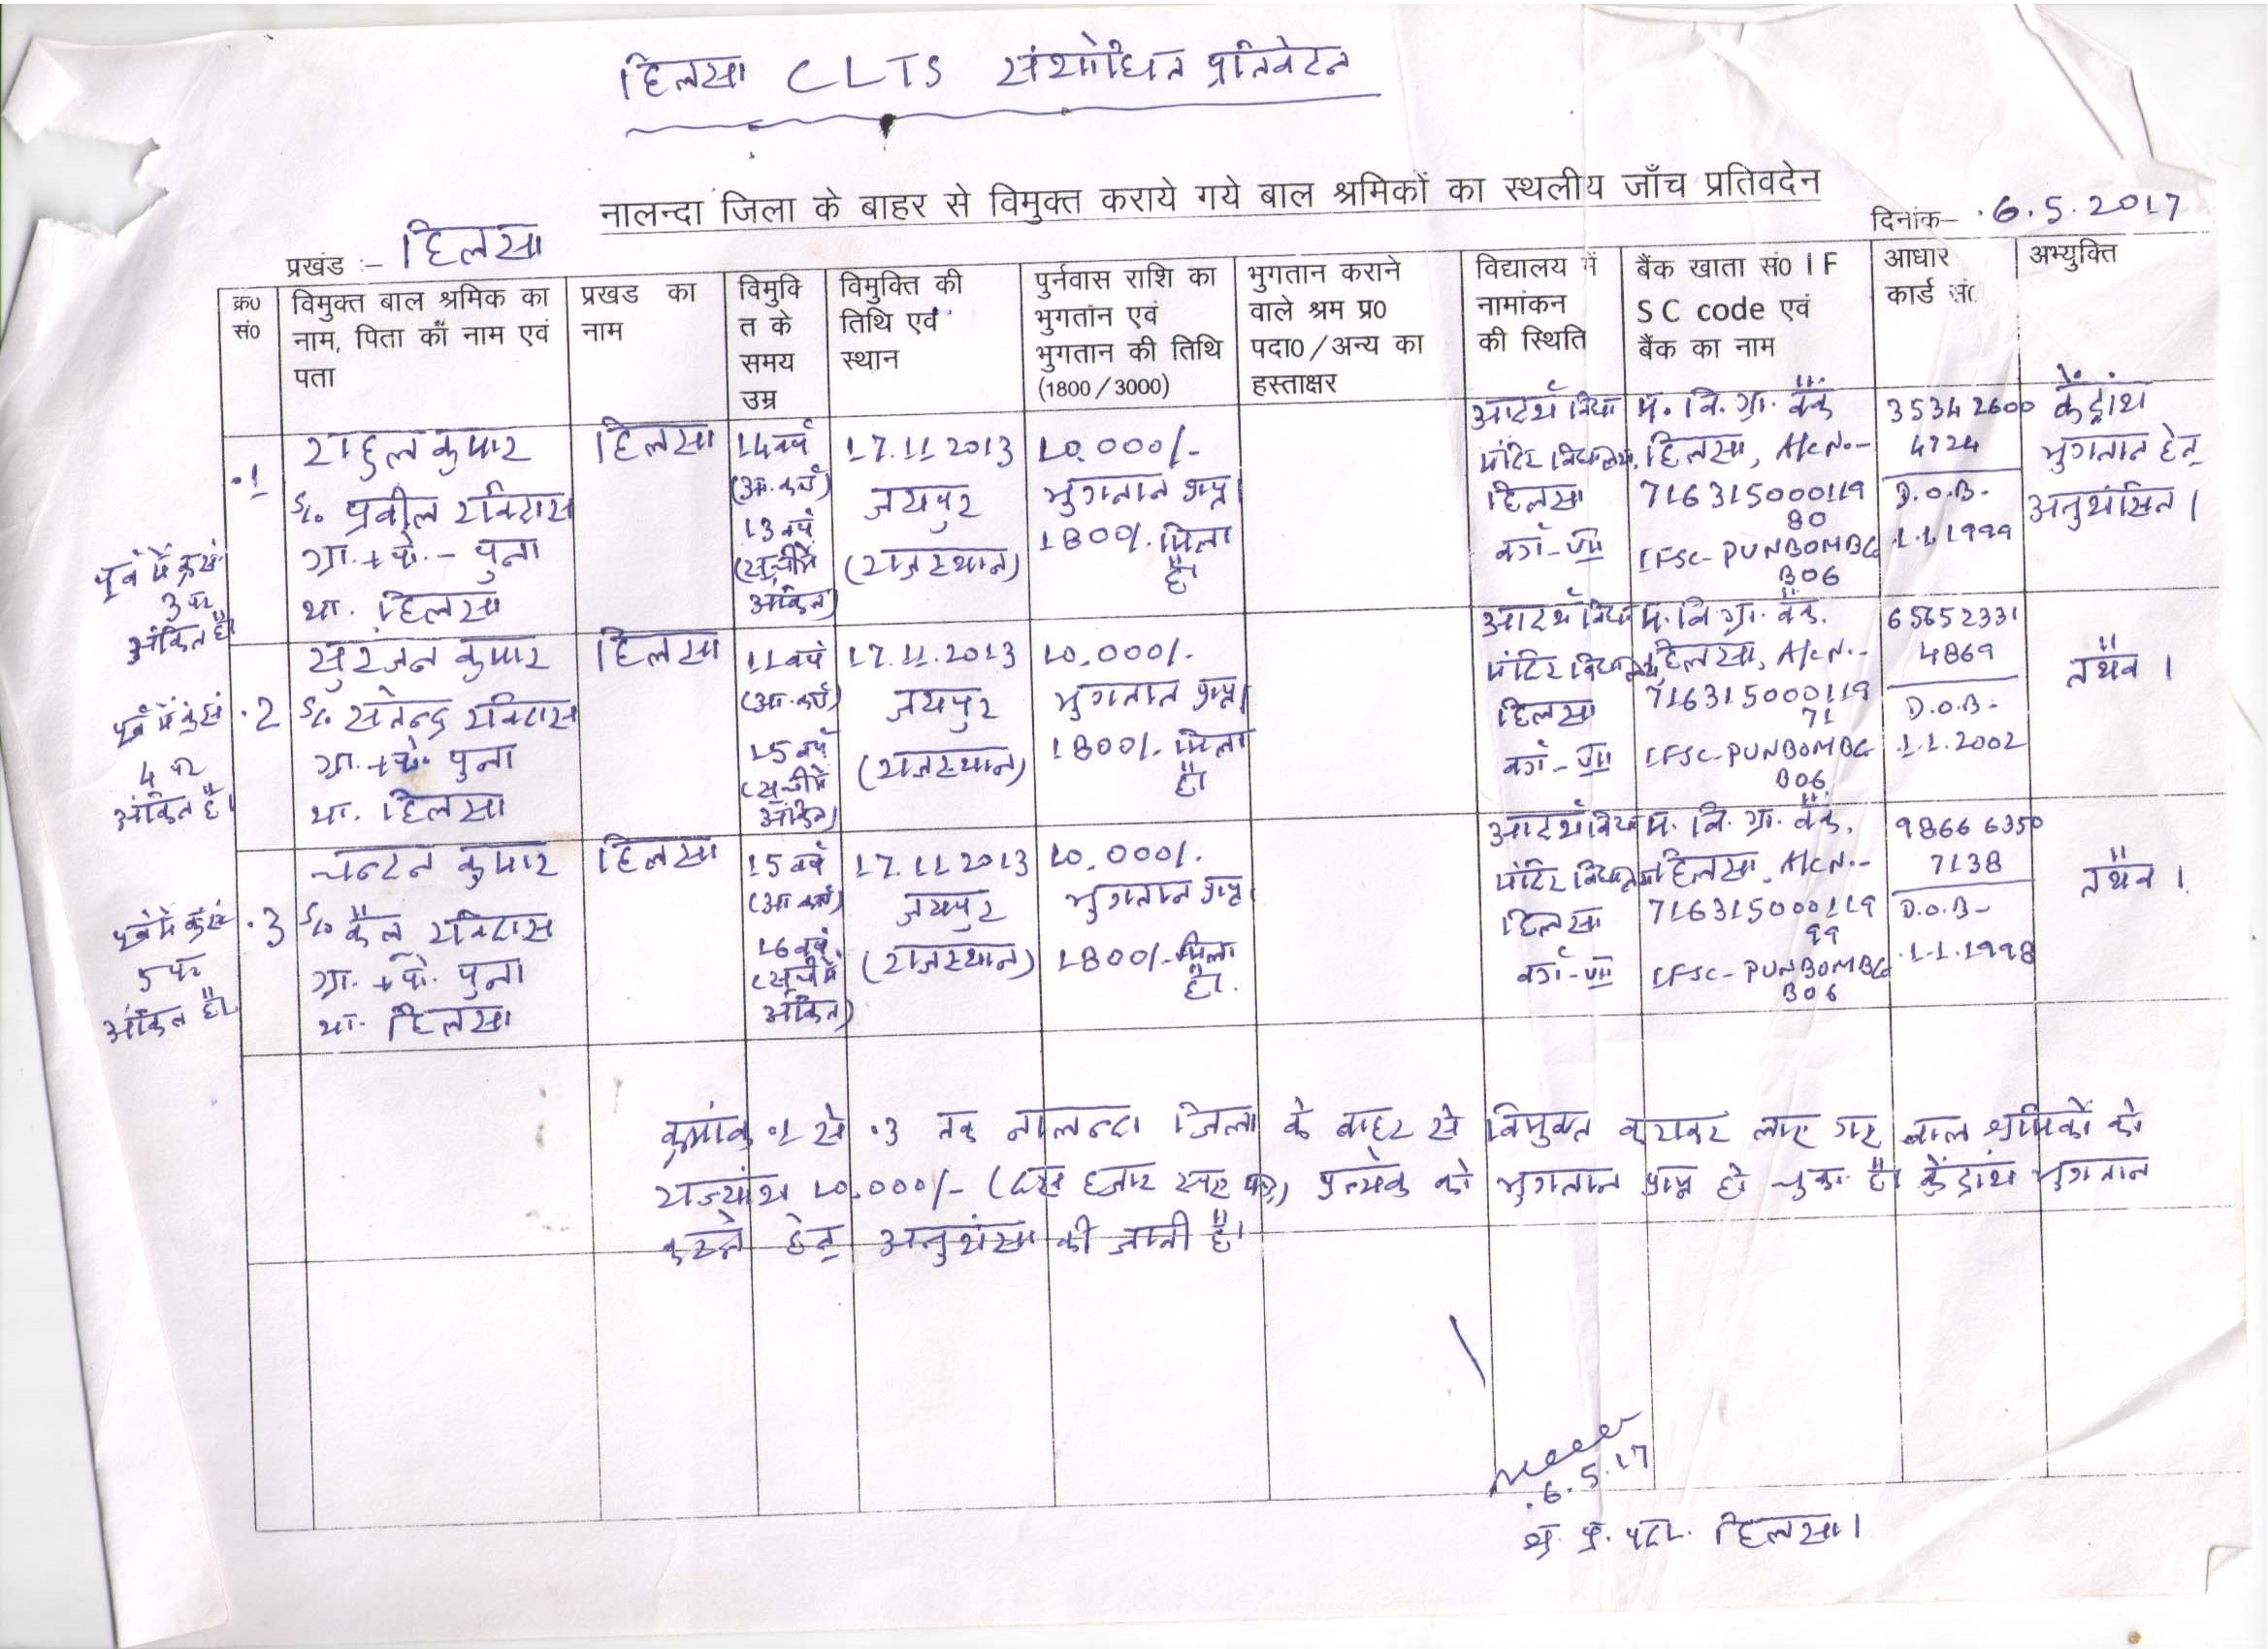 हिलसा CLTS संशोधित प्रतिवेदन
नालन्दा जिला के बाहर से विमुक्त कराये गये बाल श्रमिकों का स्थलीय जाँच प्रतिवदेन
प्रखंड :- हिलसा
दिनांक- .6.5.2017
क्र0 सं0
विमुक्त बाल श्रमिक का
नाम, पिता का नाम एवं
पता
प्रखड का
नाम
विमुक्ति
त के
समय
उम्र
विमुक्ति की
तिथि एवं
स्थान
पुर्नवास राशि का
भुगतान एवं
भुगतान की तिथि
(1800/3000)
भुगतान कराने
वाले श्रम प्र0
पदा0/अन्य का
हस्ताक्षर
विद्यालय में
नामांकन
की स्थिति
बैंक खाता सं0 I F
S C code एवं
बैंक का नाम
आधार
कार्ड सं0
अभ्युक्ति
पूर्व में क्र.सं.
3 पर
अंकित है।
.1
राहुल कुमार
S/o प्रवील रविदास
ग्रा.+पो.- पुना
था. हिलसा
हिलसा
14 वर्ष
(आ.कार्ड)
13 वर्ष
(सूची में
अंकित)
17.11.2013
जयपुर
(राजस्थान)
10,000/-
भुगतान प्राप्त।
1800/. मिला
है।
आदर्श विद्या
मंदिर विद्यालय,
हिलसा
वर्ग-VII
म. बि. ग्रा. बैंक
हिलसा, A/c No.-
716315000119
80
IFSC-PUNB0MBG
B06
35342600
4724
D.O.B-
.1.1.1999
केंद्रांश
भुगतान हेतु
अनुशंसित।
पूर्व में क्र.सं.
4 पर
अंकित है।
.2
सुरंजन कुमार
S/o सतेन्द्र रविदास
ग्रा.+पो. पुना
था. हिलसा
हिलसा
11 वर्ष
(आ.कार्ड)
15 वर्ष
(सूची में
अंकित)
17.11.2013
जयपुर
(राजस्थान)
10,000/.
भुगतान प्राप्त।
1800/. मिला
है।
आदर्श विद्या
मंदिर विद्यालय,
हिलसा
वर्ग-VIII
म. बि. ग्रा. बैंक.
हिलसा, A/c No.-
716315000119
71
IFSC-PUNB0MBG
B06
65652331
4869
D.O.B-
.1.1.2002
तथैव।
पूर्व में क्र.सं.
5 पर
अंकित है।
.3
चन्दन कुमार
S/o कैल रविदास
ग्रा.+पो. पुना
था. हिलसा
हिलसा
15 वर्ष
(आ.कार्ड)
16 वर्ष
(सूची में
अंकित)
17.11.2013
जयपुर
(राजस्थान)
10,000/.
भुगतान प्राप्त।
1800/- मिला
है।
आदर्श विद्या
मंदिर विद्यालय
हिलसा
वर्ग-VII
म. बि. ग्रा. बैंक.
हिलसा, A/c No.-
716315000119
99
IFSC-PUNB0MBG
B06
98666350
7138
D.O.B-
.1.1.1998
तथैव।
क्रमांक .1 से .3 तक नालन्दा जिला के बाहर से विमुक्त कराकर लाए गए बाल श्रमिकों को
राज्यांश 10,000/- (दस हजार रुपए) प्रत्येक को भुगतान प्राप्त हो चुका है। केंद्रांश भुगतान
करने हेतु अनुशंसा की जाती है।
.6.5.17
श्र. प्र. पदा. हिलसा।